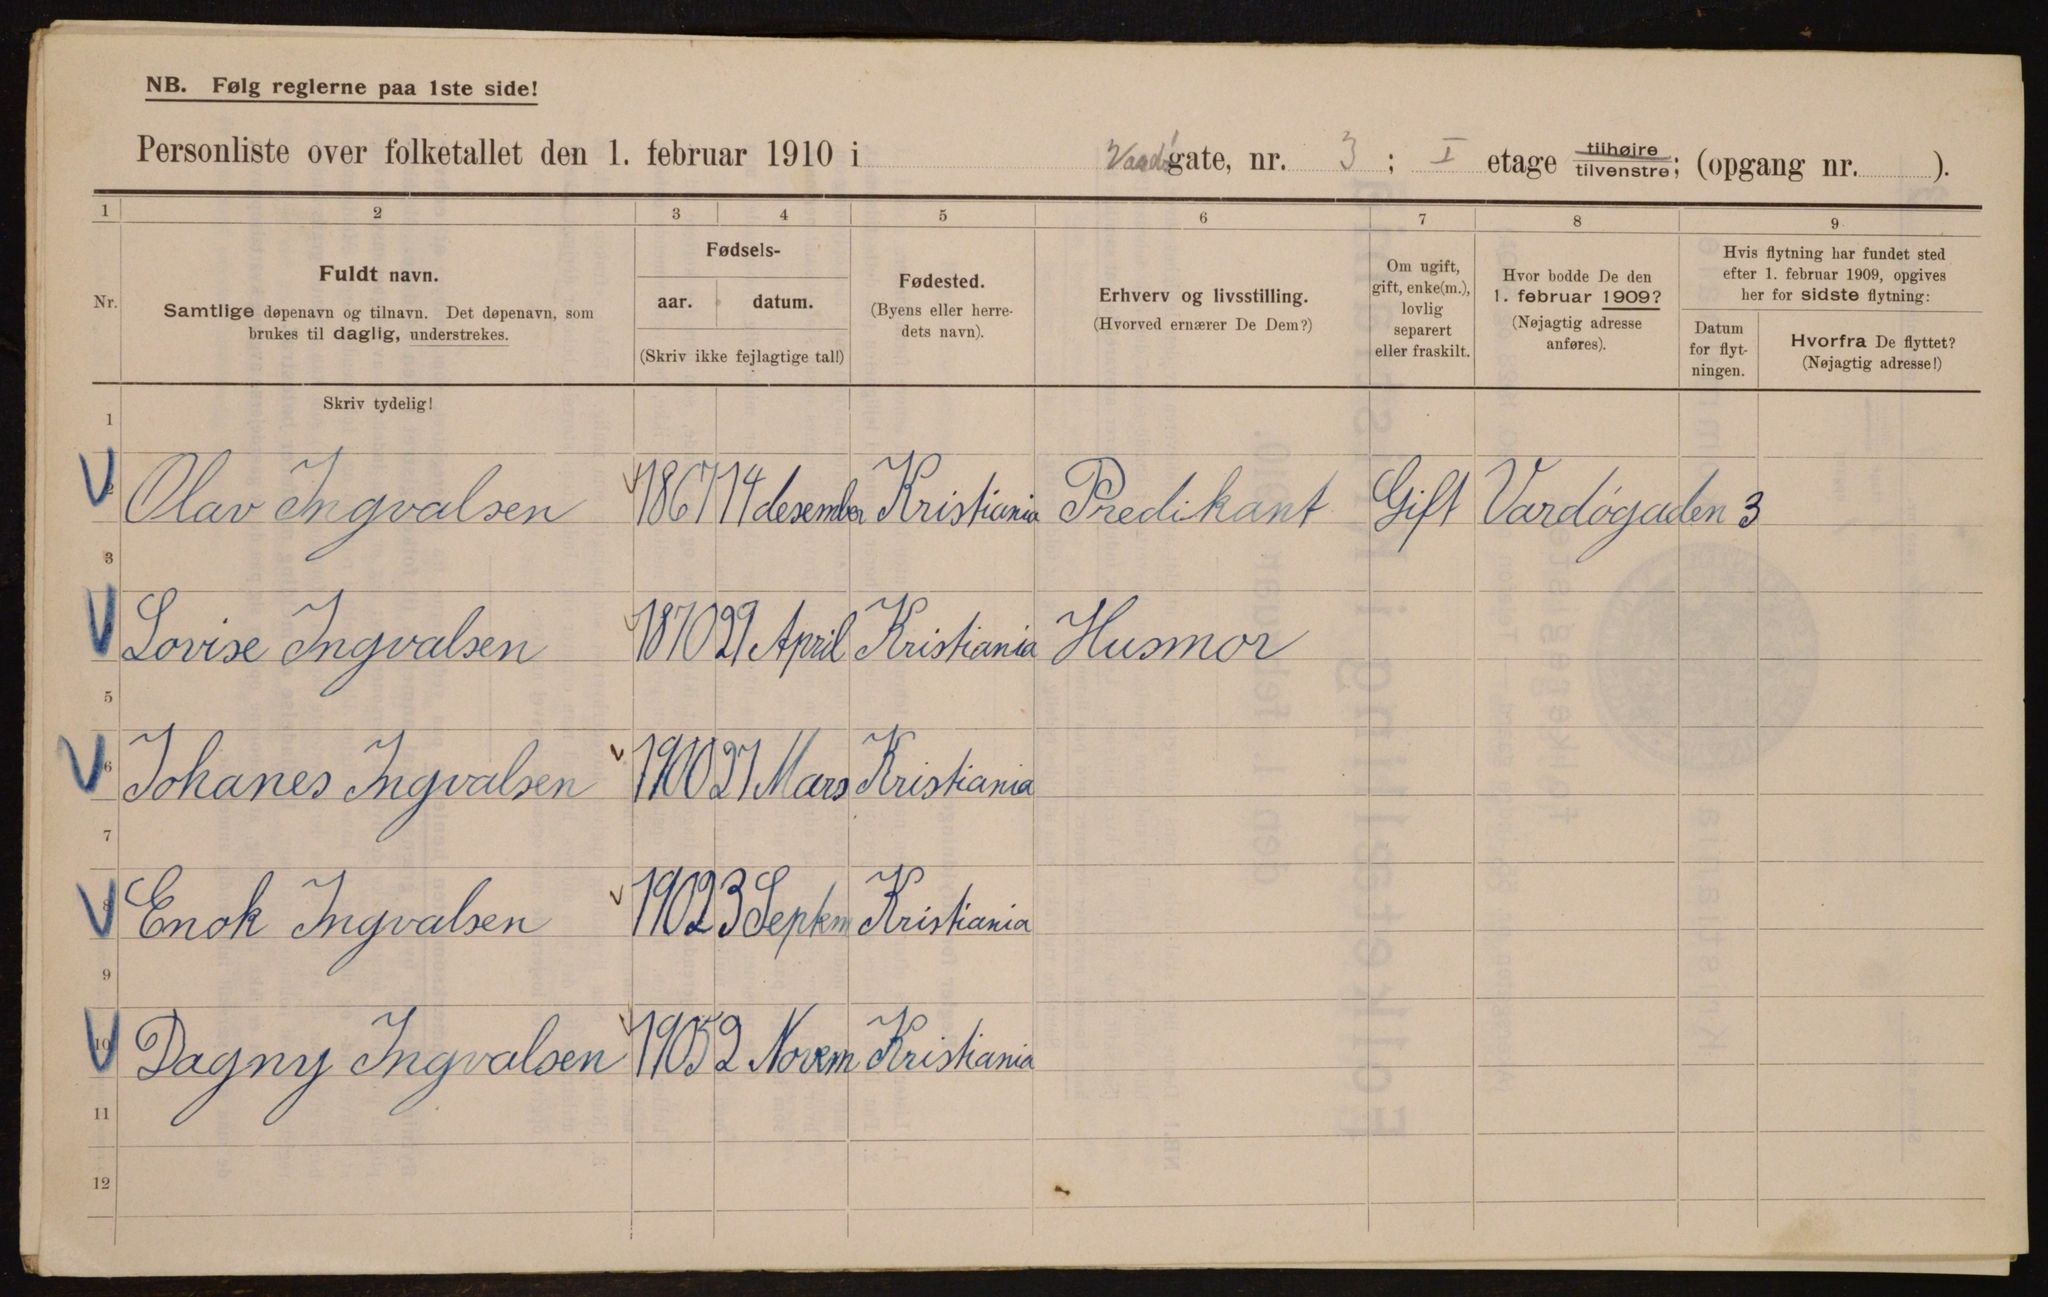 NB. Følg reglerne paa 1ste side!
Personliste over folketallet den 1. februar 1910 i Vardø gate, nr. 3 ; I etage tilhøire tilvenstre; (opgang nr. ).
1 2 3 4 5 6 7 8 9
Nr.
Fuldt navn.
Samtlige døpenavn og tilnavn. Det døpenavn, som
brukes til daglig, understrekes.
Fødsels-
aar. datum.
(Skriv ikke fejlagtige tal!)
Fødested.
(Byens eller herre-
dets navn).
Erhverv og livsstilling.
(Hvorved ernærer De Dem?)
Om ugift,
gift, enke(m.),
lovlig
separert
eller fraskilt.
Hvor bodde De den
1. februar 1909?
(Nøjagtig adresse
anføres).
Hvis flytning har fundet sted
efter 1. februar 1909, opgives
her for sidste flytning:
Datum
for flyt-
ningen.
Hvorfra De flyttet?
(Nøjagtig adresse!)
Skriv tydelig!
1
2 Olav Ingvalsen 1867 14 desember Kristiania Predikant Gift Vardøgaden 3
3
Lovise Ingvalsen 1870 29 April Kristiania Husmor
5
6 Johanes Ingvalsen 1900 27 Mars Kristiania
7
8 Enok Ingvalsen 1902 3 Septem Kristiania
9
10 Dagny Ingvalsen 1905 2 Novem Kristiania
11
12